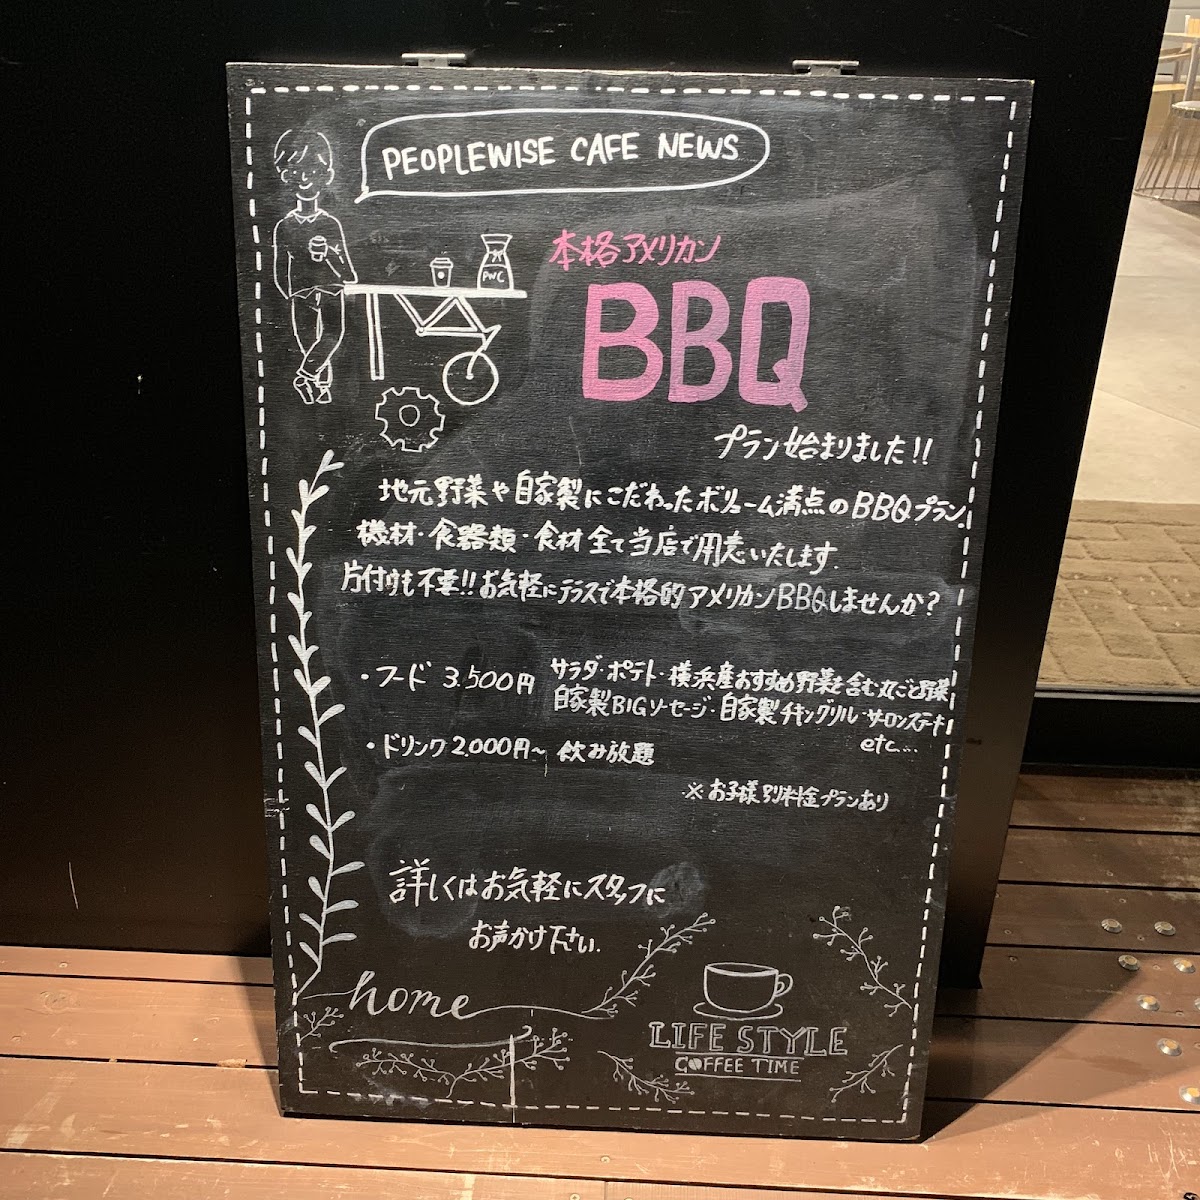 PEOPLEWISE CAFE NEWS
PWC
本格アメリカン
BBQ
プラン始まりました!!
地元野菜や自家製にこだわったボリューム満点のBBQプラン。
機材・食器類・食材全て当店で用意いたします。
片付けも不要!!お気軽にテラスで本格的アメリカンBBQしませんか?
・フード 3,500円 サラダ・ポテト・横浜産おすすめ野菜を含む丸ごと野菜
自家製BIGソーセージ・自家製チキングリル・サーロインステーキ
etc....
・ドリンク 2,000円~ 飲み放題
※お子様別料金プランあり
詳しくはお気軽にスタッフに
お声かけ下さい。
home
LIFE STYLE
COFFEE TIME